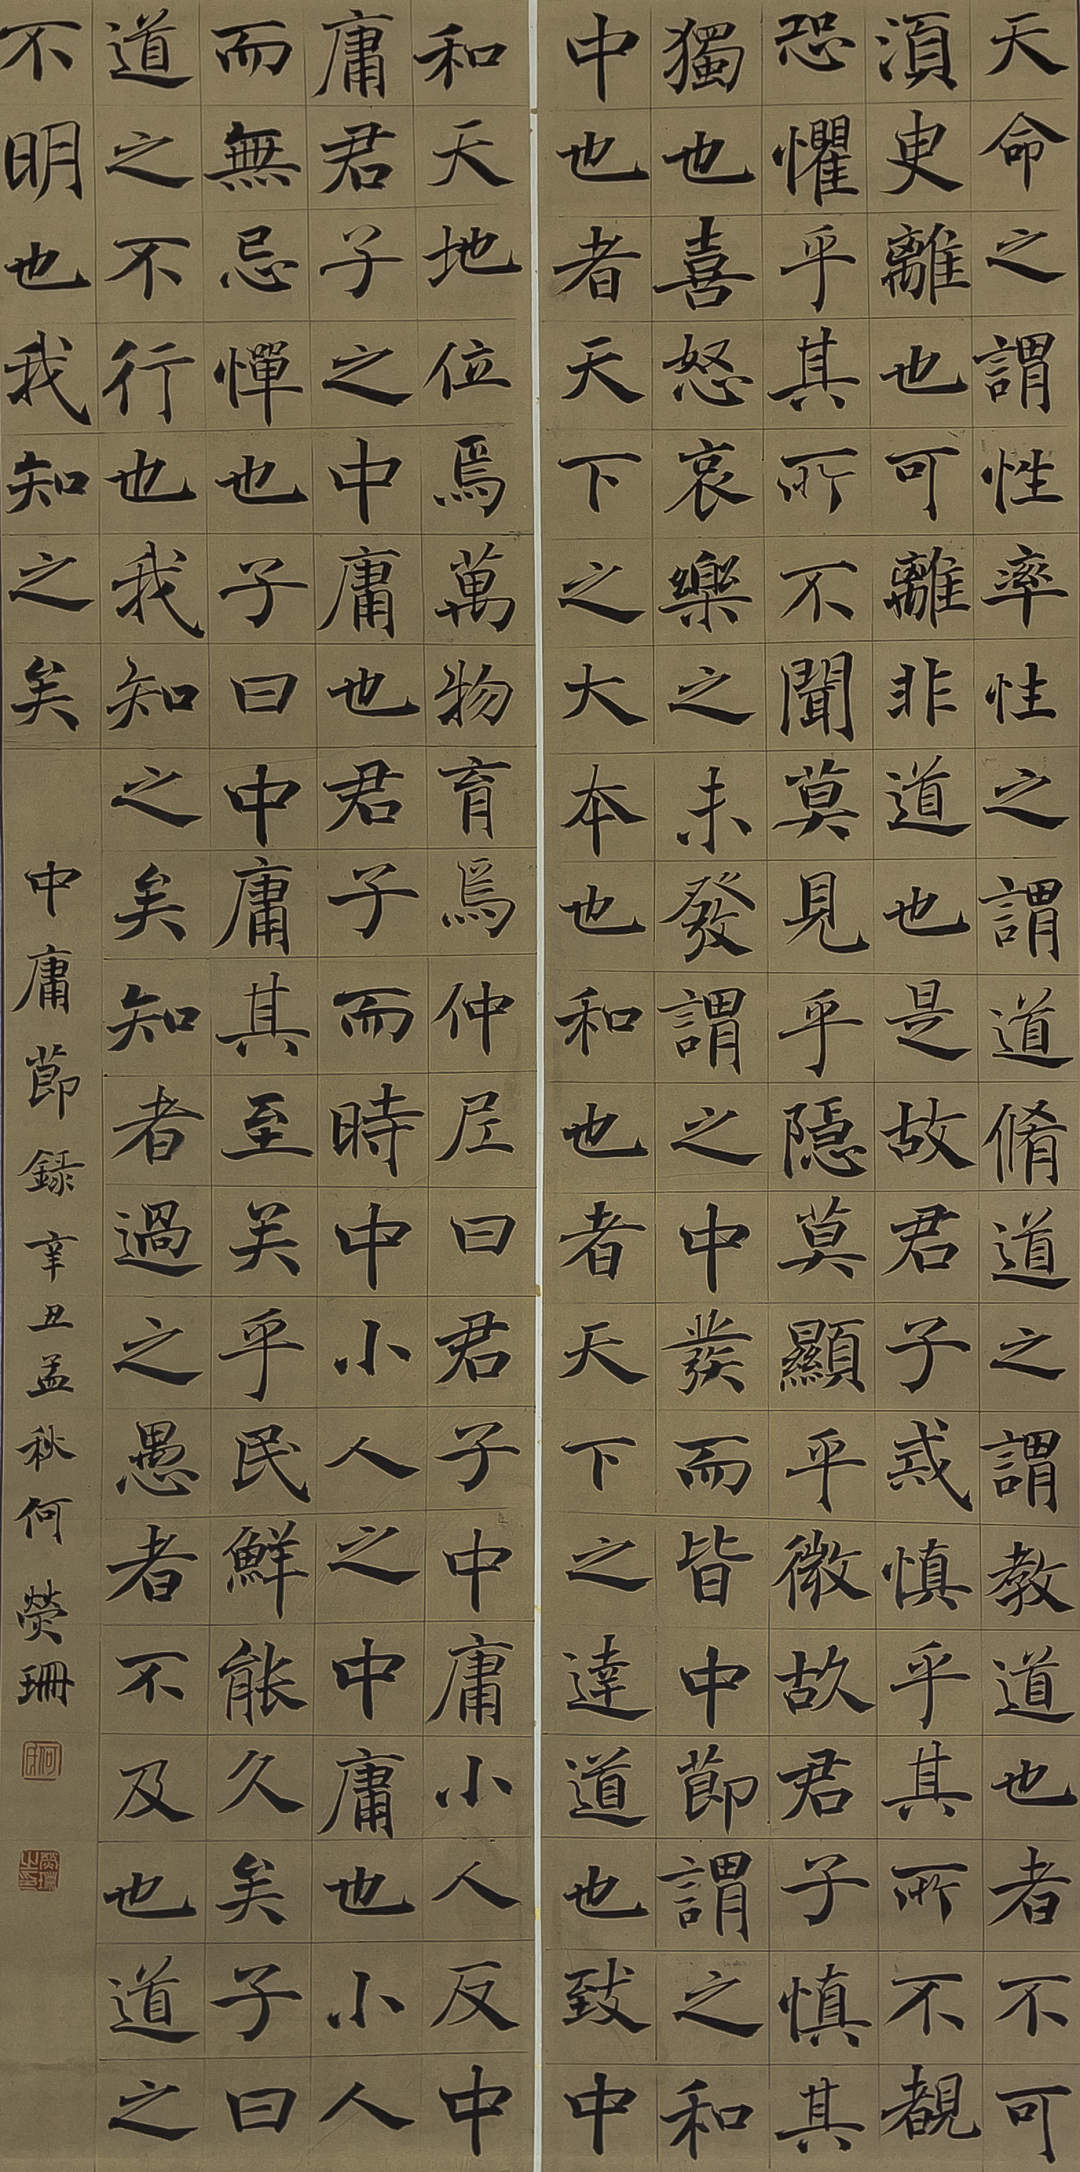 天命之謂性率性之謂道脩道之謂教道也者不可
須臾離也可離非道也是故君子戒慎乎其所不覩
恐懼乎其所不聞莫見乎隱莫顯乎微故君子慎其
獨也喜怒哀樂之未發謂之中發而皆中節謂之和
中也者天下之大本也和也者天下之達道也致中
和天地位焉萬物育焉仲尼曰君子中庸小人反中
庸君子之中庸也君子而時中小人之中庸也小人
而無忌憚也子曰中庸其至矣乎民鮮能久矣子曰
道之不行也我知之矣知者過之愚者不及也道之
不明也我知之矣
中庸節錄辛丑孟秋何熒珊